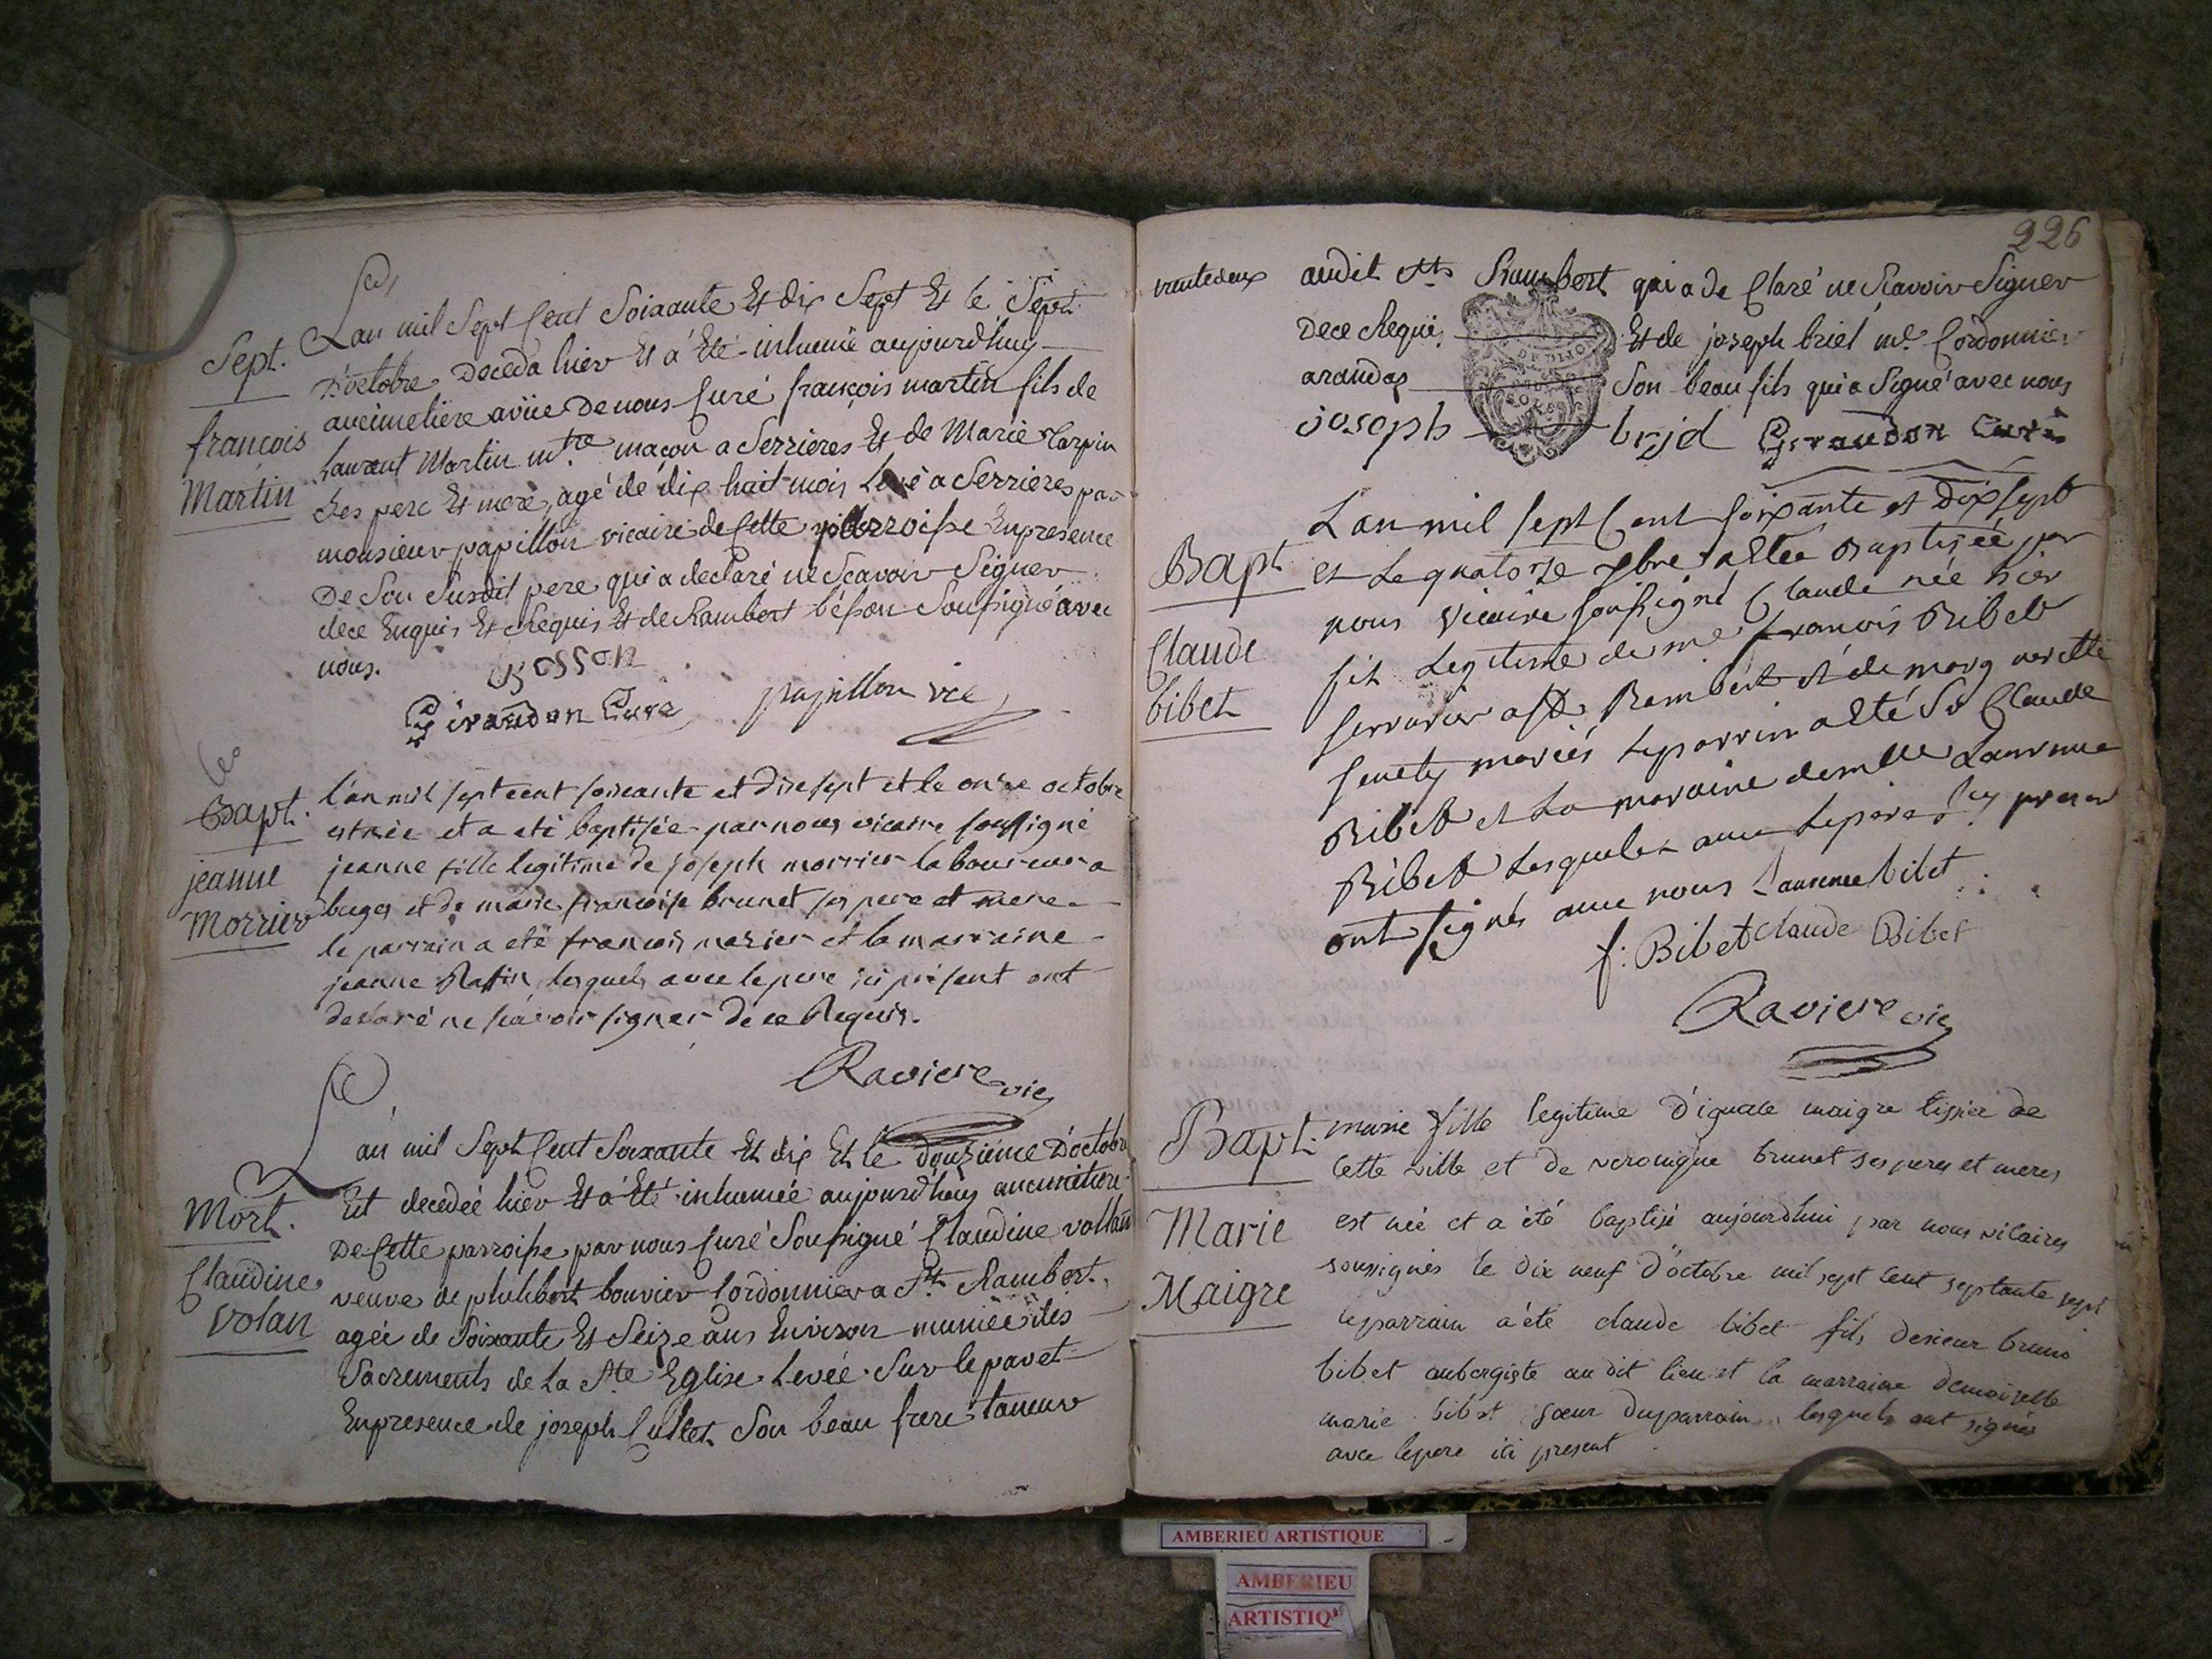 Sept.
françois
Martin
Lan mil Sept Cent Soixante Et dix Sept Et le Sept
D'octobre Deceda hier Et a Eté inhumé aujourdhuy
aucimetiére de nous Curé françois martin fils de
Laurent Martin mtre maçon a Serrieres Et de Marie
Ses pere Et mere, agé de dix huit mois Levé a Serrieres par
monsieur papillon vicaire de Cette parroisse Enpresence
De Son Susdit pere qui a declaré ne Scavoir Signer
dece Enquis Et Requis Et de Rambert béson Soussigné avec
nous. Bosson
Giraudon Curé papillon vic
Bapt.
jeanne
Morrier
l'an mil sept cent soixante et dixsept et le onze octobre
est née et a eté baptisée par nous vicaire soussigné
jeanne fille legitime de joseph morrier laboureur a
buges et de marie françoise brunet ses pere et mere
le parrain a eté françois morier et la marraine
jeanne Ratin lesquels avec le pere ici présent ont
declaré ne scavoir signer de ce Requis.
Raviere vic
Mort.
Claudine
volan
Lan mil Sept Cent Soixante Et dix Et le douzieme D'octobre
Est decedée hier Et a Eté inhumée aujourdhuy aucimetiere
De Cette parroisse par nous Curé Soussigné Claudine vollan
veuve de philibert bouvier Cordonnier a St Rambert
agée de Soixante Et Seize ans Environ munie des
Sacrements de La Ste Eglise Levée Sur lepavet
Enpresence de joseph Cullet Son beau frere taneur
226
audit St Rambert qui a de Claré ne Scavoir Signer
Dece Requi Et de joseph briel me Cordonnier
arandas Son beau fils qui a Signé avec nous
joseph brjd Giraudon Curé
DE DIJON
Bapt
Claude
bibet
L an mil sept Cent soixante et Dix sept
et Le quatorze 8bre a Eté Baptisée par
nous Vicaire soussigné Claude née hier
fils Legitime de me françois Bibet
serrurier a St Rambert et de marguerette
mariés Le parrin a Eté Sr Claude
Bibet et La maraine demlle Laurence
Bibet Lesquels avec Le pere icy present
ont signés avec nous Laurence bibet
f: Bibet claude Bibet
Raviere vic
Bapt.
Marie
Maigre
marie fille legitime d'ignace maigre tissier de
cette ville et de veronique brunet ses peres et meres
est née et a été baptisé aujourdhui par nous vicaires
soussignés le dix neuf d'octobre mil sept cent septante sept
le parrain a été claude bibet fils desieur bruno
bibet aubergiste audit lieu et la marraine demoiselle
marie bibet sœur duparrain lesquels ont signés
avec le pere ici present
AMBERIEU ARTISTIQUE
AMBERIEU
ARTISTIQ